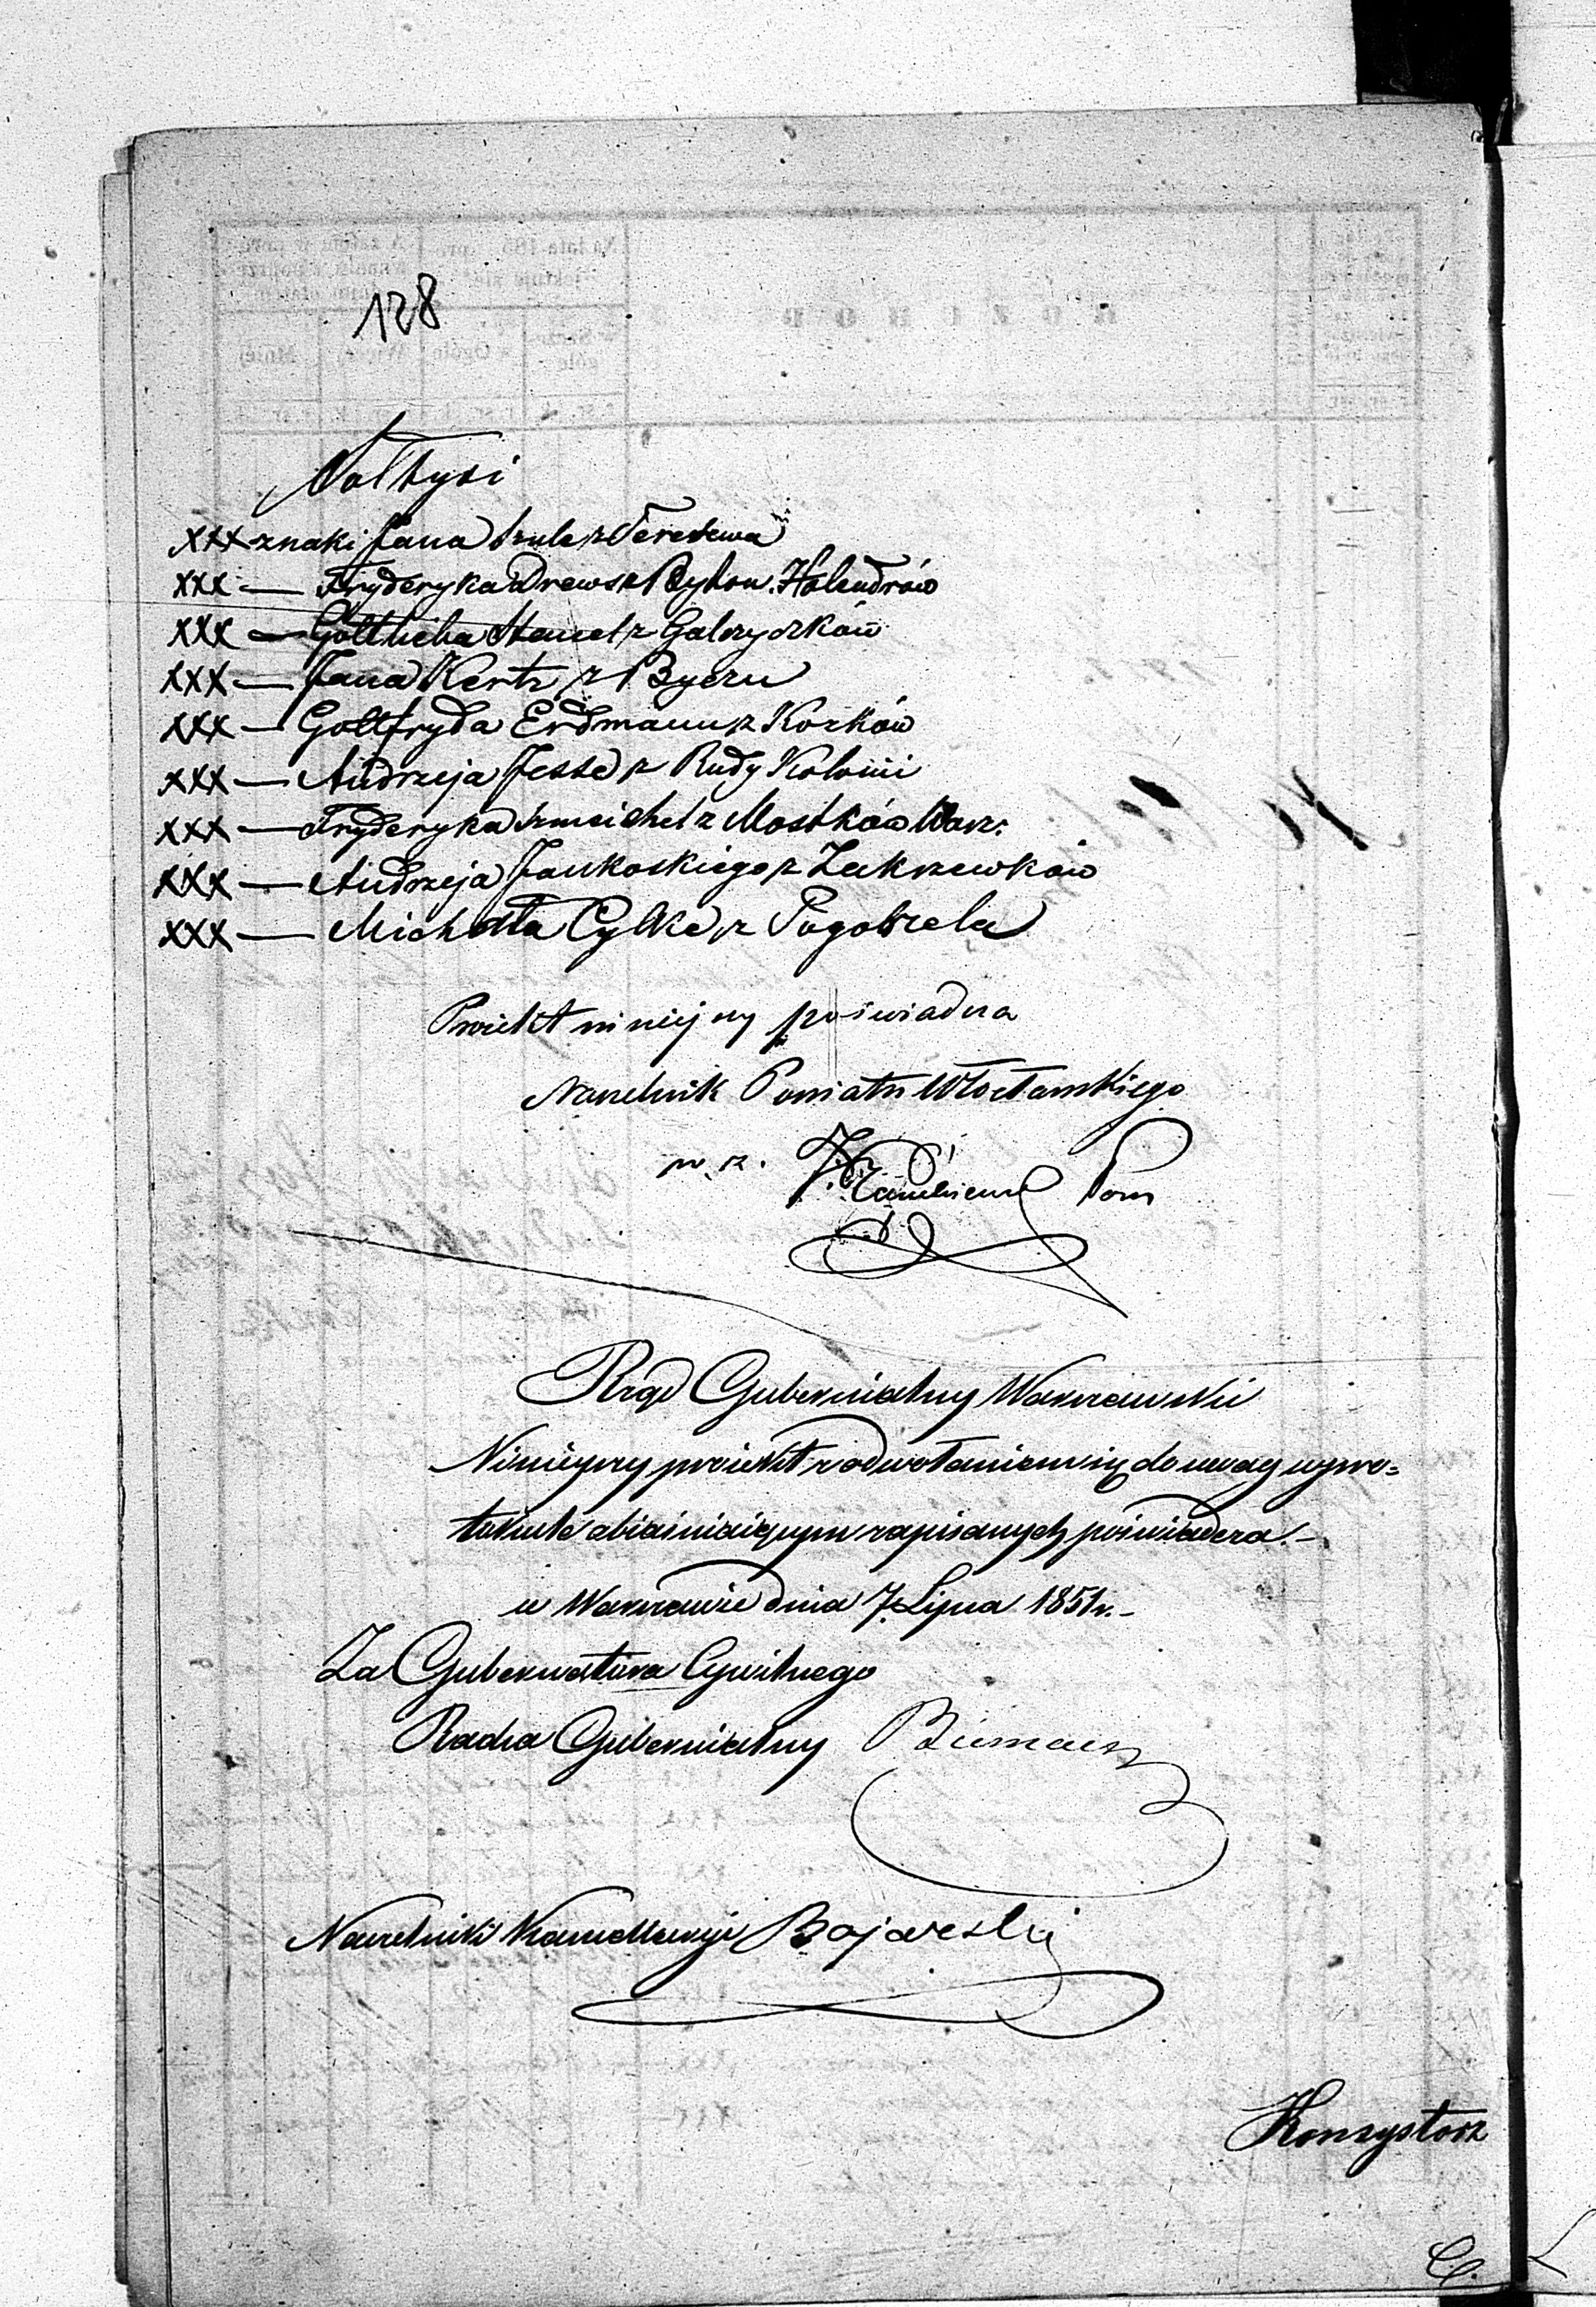 128
Sołtysi
xxx znaki Jana Szulc z Teresewa
xxx — Fryderyka Drews z Byton. Holendrów
xxx — Gottlieba Hencel z Galczyczków
xxx — Jana Kertz z Byczu
xxx — Gottfryda Erdmann z Korków
xxx — Andrzeja Jesse z Rudy Kolonii
xxx — Fryderyka Szmeichel z Mostków Warz:
xxx — Andrzeja Jankoskiego z Zakrzewków
xxx — Michała Cylke z Pogorzela
Proiekt niniejszy poświadcza
Naczelnik Powiatu Włocławskiego
w z.
Rząd Gubernialny Warszawski
Niniejszy proiekt z odwołaniem się do uwag w pro=
tokule obiaśniaiącym zapisanych poświadcza.—
w Warszawie dnia 7. Lipca 1851 r.—
Za Gubernatora Cywilnego
Radca Gubernialny
Naczelnik Kancellaryi
Konsystorz